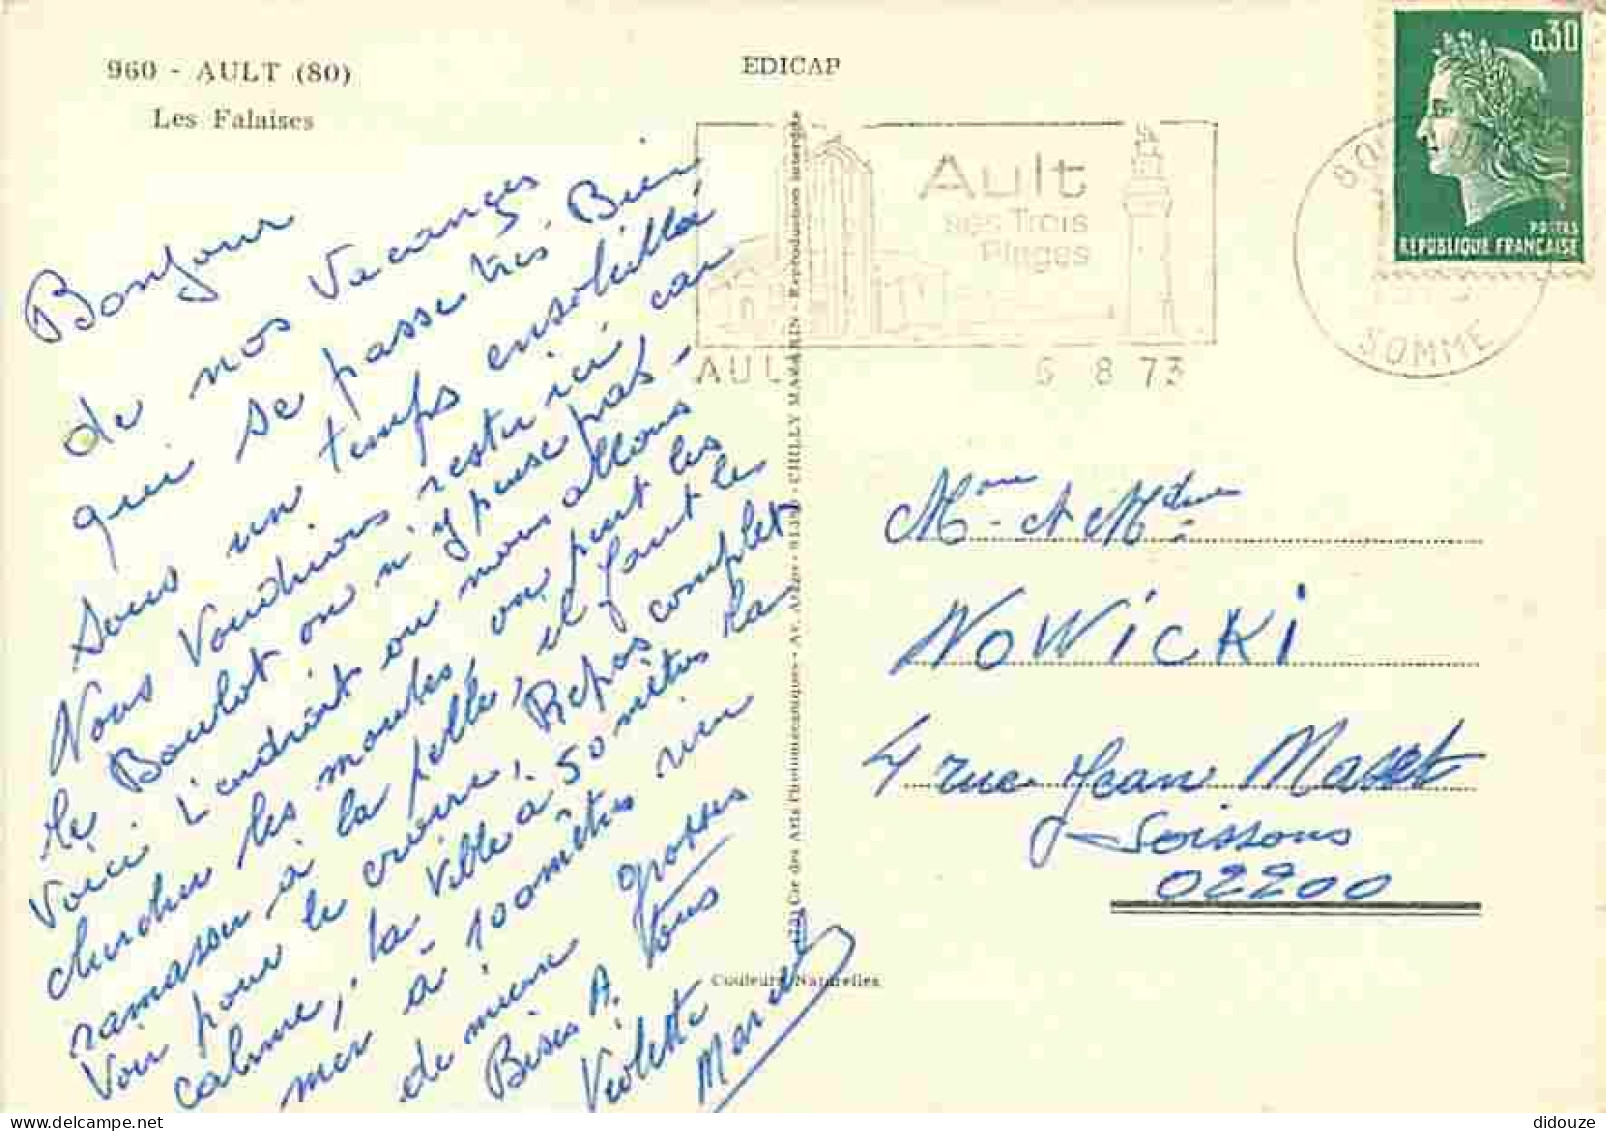 960 - AULT (80)
Les Falaises
EDICAP
0,30
POSTES
REPUBLIQUE FRANÇAISE
Ault
ses Trois
Plages
AUL
6 8 73
80
SOMME
Bonjour
de nos vacançes
qui se passe très Bien
sous un temps ensoleillé
Nous voudrions rester ici car
le Boulot on n'y pense pas-
voici l'endroit ou nous allons
chercher les moules, on peut les
ramasser à la pelle, il faut le
voir pour le croire, Repos complet
calme, la ville a 50 mètres la
mer à 100 mètres rien
de mieux grosses
Bises A tous
Violette
Marcel
Mme et
NOWiCKi
4 rue Jean Macet
Soissons
02200
Cie des Arts Photomécaniques - Av. Arago - 91380 - CHILLY MAZARIN - Reproduction interdite
Couleurs Naturelles
didouze